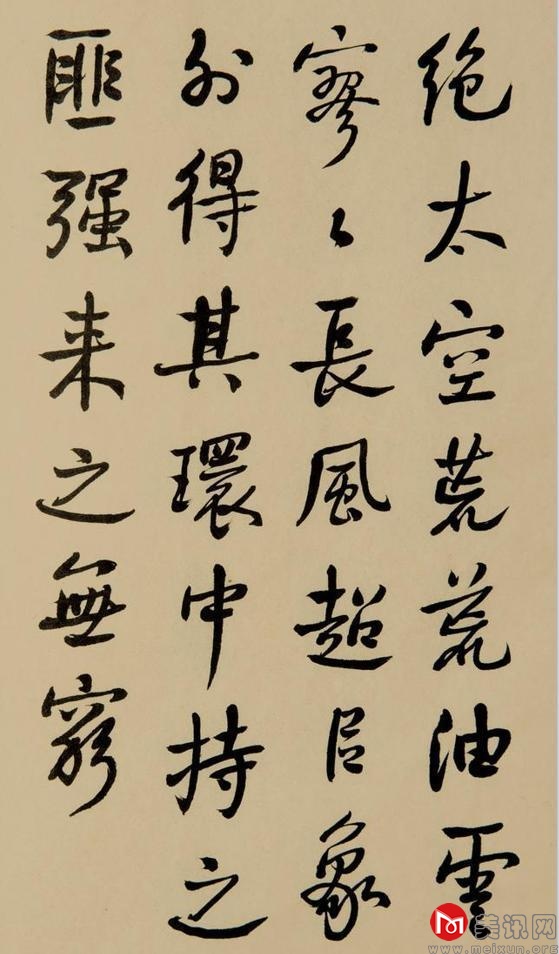 绝太空荒荒油雲
寥々長風超以象
外得其環中持之
匪强来之無窮
美讯网
www.meixun.org